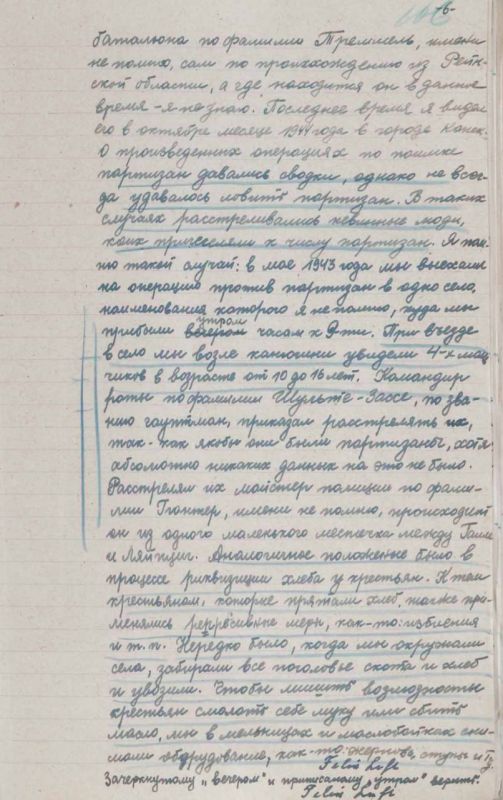 -6-
батальона по фамилии Треммель, имени
не помню, сам по происхождению из Рейн-
ской области, а где находится он в данное
время - я не знаю. Последнее время я видел
его в октябре месяце 1944 года в городе
О произведенных операциях по поимке
партизан давались сводки, однако не всег-
да удавалось ловить партизан. В таких
случаях расстреливались невинные люди,
коих причисляли к числу партизан. Я пом-
ню такой случай: в мае 1943 года мы выехали
на операцию против партизан в одно село,
наименования которого я не помню, куда мы
утром
прибыли вечером часам к 9-ти. При въезде
в село мы возле конюшни увидели 4-х маль-
чиков в возрасте от 10 до 16 лет. Командир
роты по фамилии Шульте-Зассе, по зва-
нию гауптман, приказал расстрелять их,
так-как якобы они были партизаны, хотя
абсолютно никаких данных на это не было.
Расстрелял их мейстер полиции по фами-
лии Гюнтер, имени не помню, происходит
он из одного маленького местечка между Галле
и Ляйпциг. Аналогичное положение было в
процессе риквизиции хлеба у крестьян. К тем
крестьянам, которые прятали хлеб, также при-
менялись репрессивные меры, как-то: избиения
и т.п. Нередко было, когда мы окружали
села, забирали все поголовье скота и хлеб
и увозили. Чтобы лишить возможности
крестьян смолоть себе муку или сбить
масло, мы в мельницах и маслобойках сни-
мали оборудование, как-то: жернова, ступы и
Зачеркнутому "вечером" и приписаному "утром" верить.